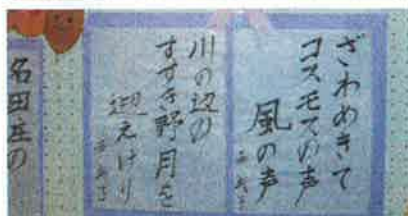 ざわめきて
コスモスの声
風の声
川の辺の
すすき野月を
迎えけり
名田庄の